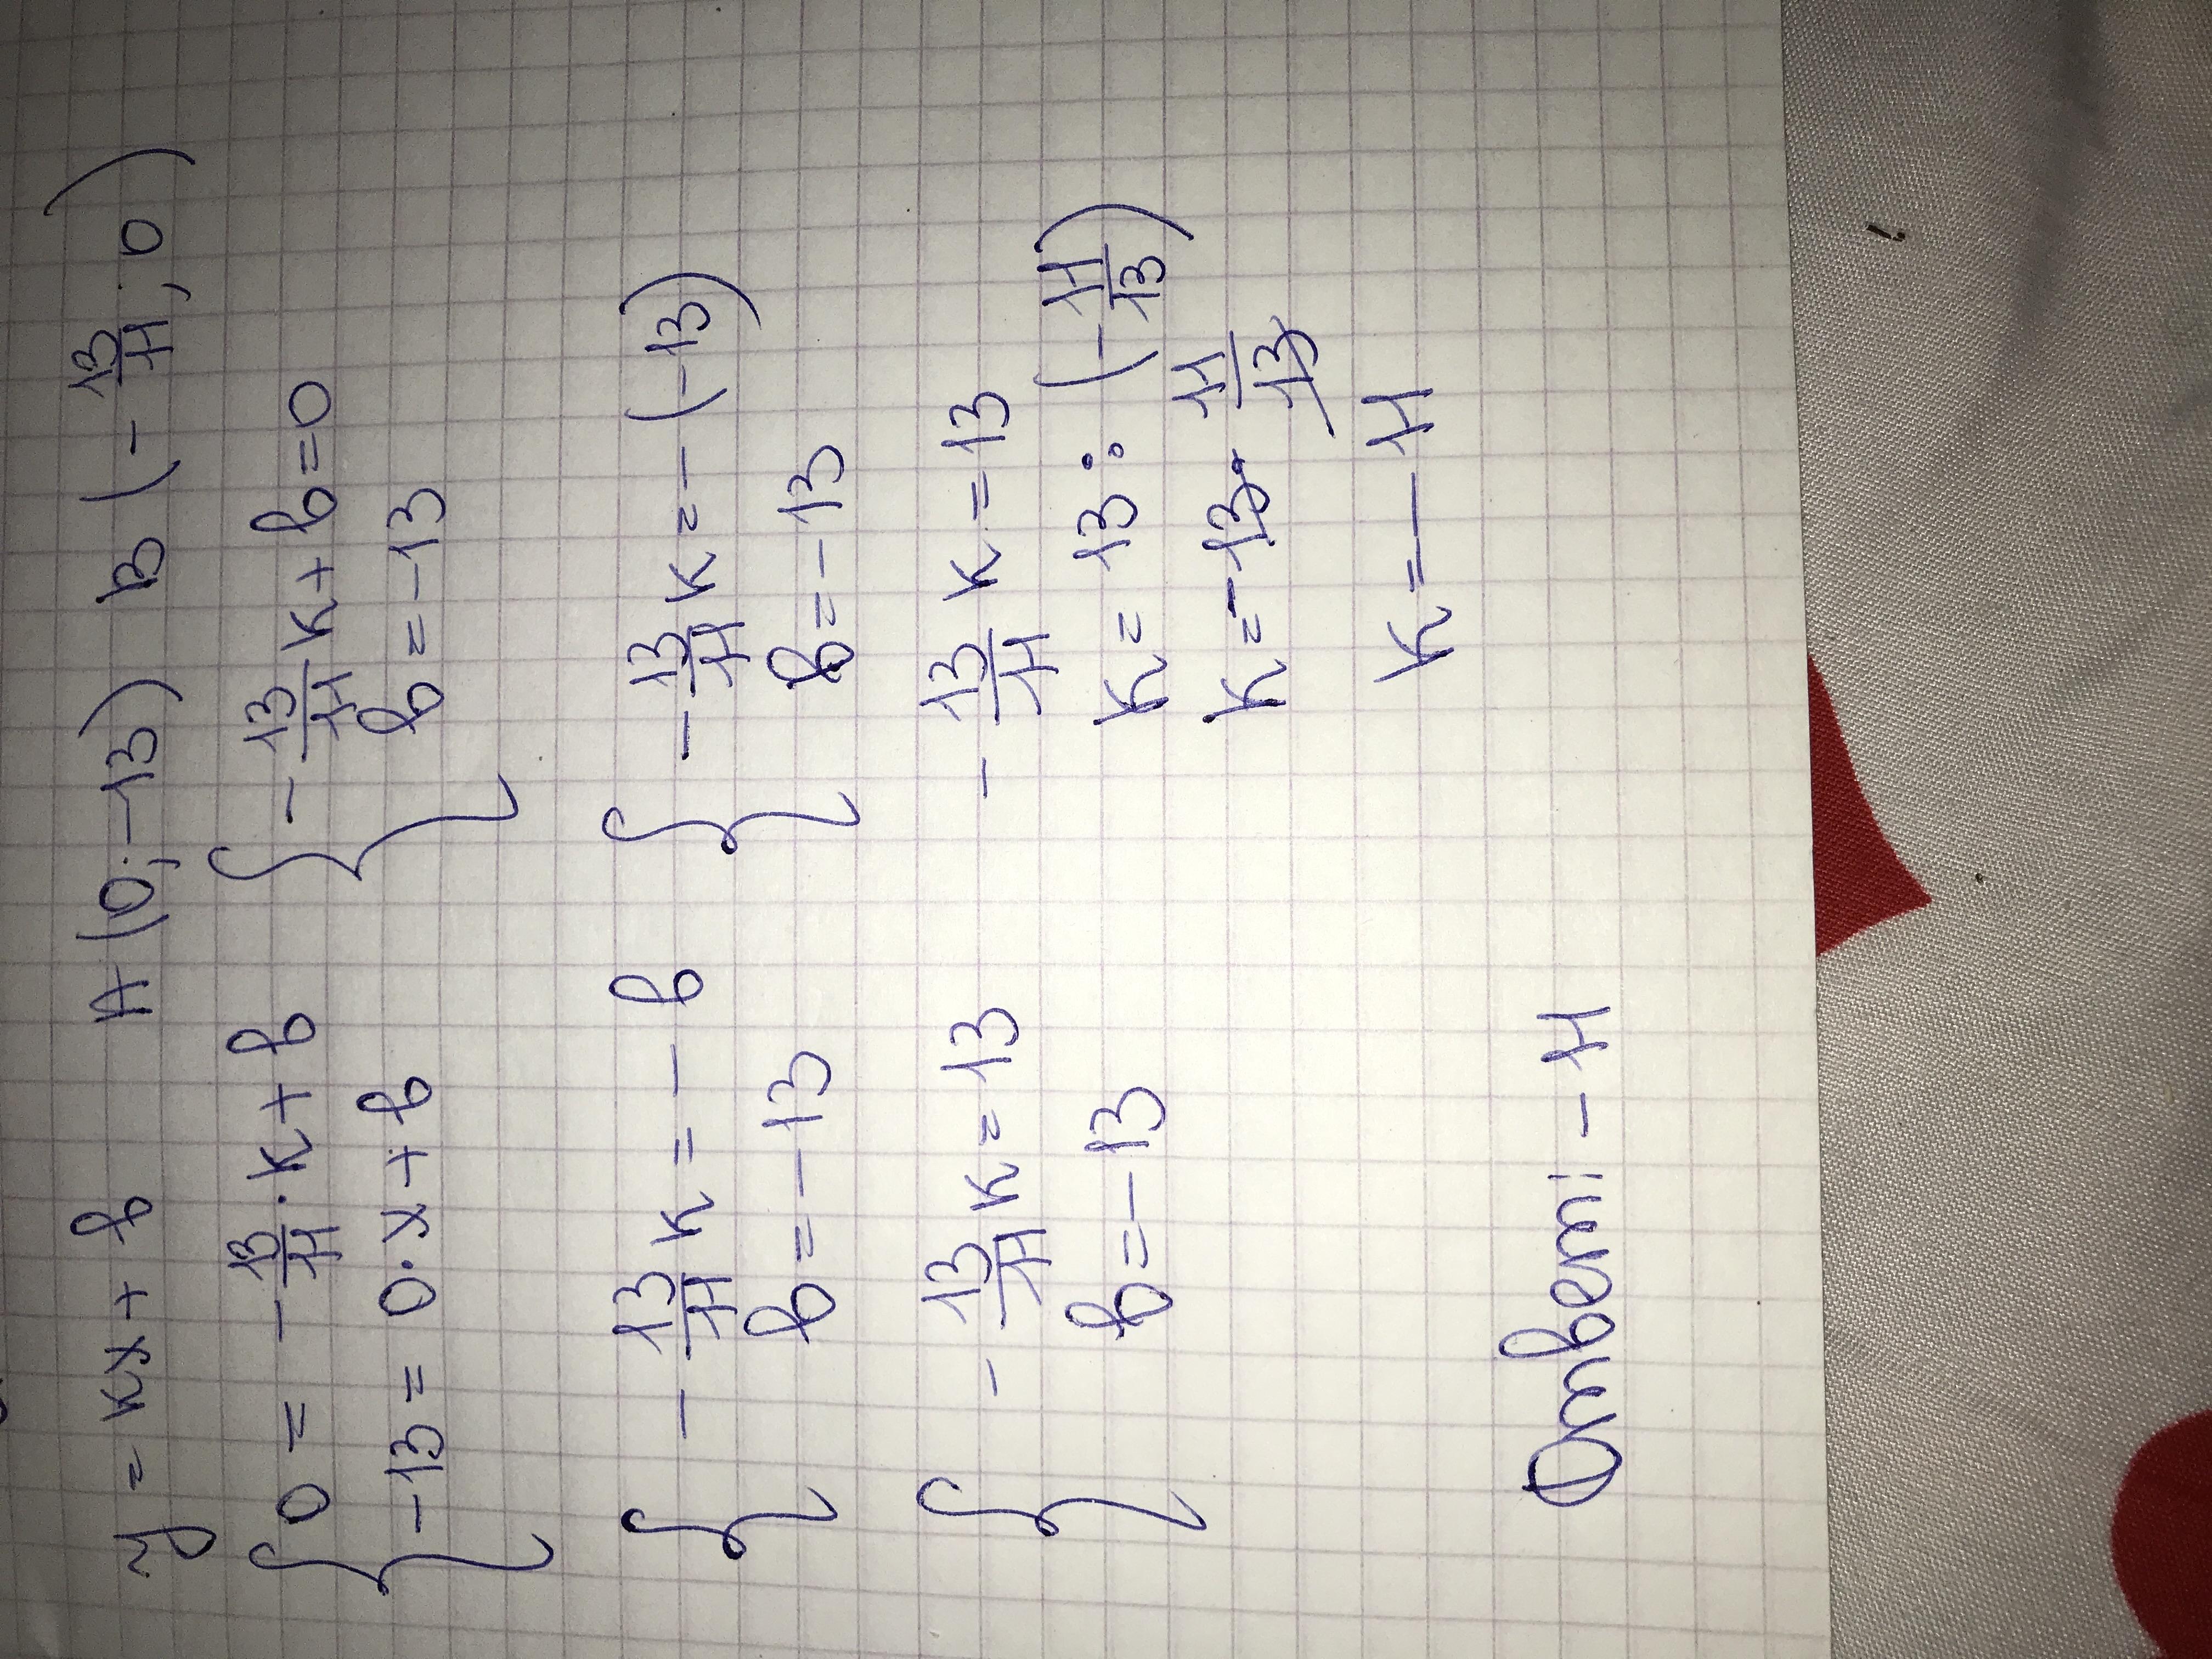 y = kx + b   A(0; -13)   B(-13/11; 0)
{ 0 = -13/11 · k + b   { -13/11 k + b = 0
-13 = 0 · x + b   b = -13
{ -13/11 k = - b   { -13/11 k = - (-13)
b = -13   b = -13
{ -13/11 k = 13   -13/11 k = 13
b = -13   k = 13 : (-11/13)
k = -13 · 11/13
k = -11
Ответ: -11